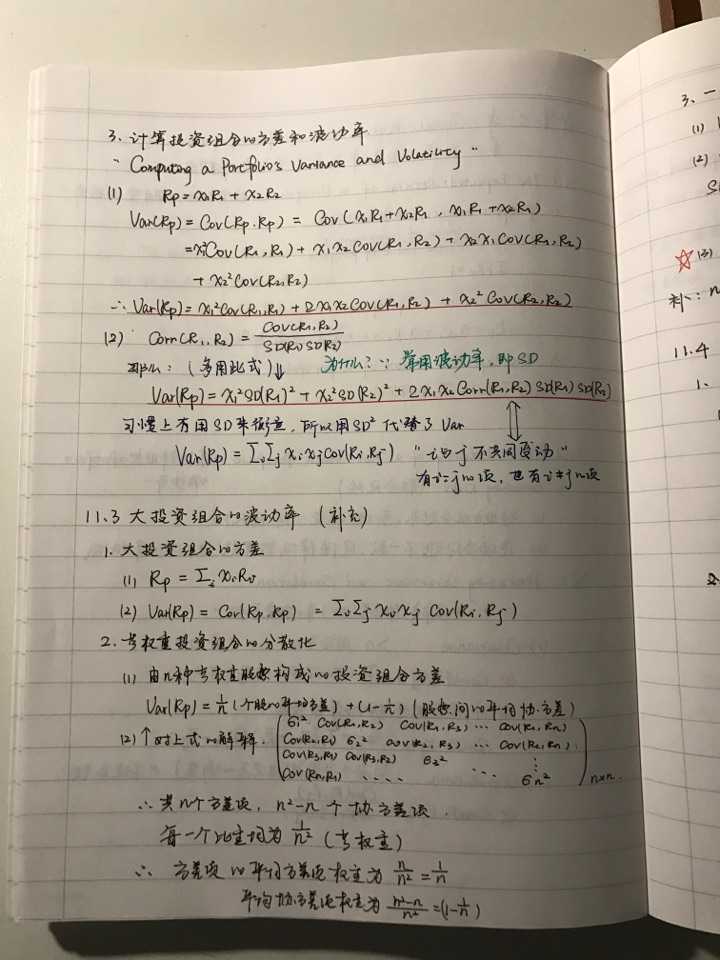 3. 计算投资组合的方差和波动率
"Computing a Portfolio's Variance and Volatility"
(1) Rp = x₁R₁ + x₂R₂
Var(Rp) = Cov(Rp, Rp) = Cov(x₁R₁+x₂R₂, x₁R₁+x₂R₂)
= x₁²Cov(R₁,R₁) + x₁x₂Cov(R₁,R₂) + x₂x₁Cov(R₁,R₂)
+ x₂²Cov(R₂,R₂)
∴ Var(Rp) = x₁²Cov(R₁,R₁) + 2x₁x₂Cov(R₁,R₂) + x₂²Cov(R₂,R₂)
(2) Corr(R₁,R₂) = Cov(R₁,R₂) / SD(R₁)SD(R₂)
那么:(多用此式)↓ 为什么?∵ 常用波动率,即SD
Var(Rp) = x₁²SD(R₁)² + x₂²SD(R₂)² + 2x₁x₂Corr(R₁,R₂)SD(R₁)SD(R₂)
习惯上有用SD来衡量,所以用SD²代替了Var
Var(Rp) = ΣᵢΣⱼ xᵢxⱼCov(Rᵢ,Rⱼ) "i与j不共同变动"
有i=j的项,也有i≠j的项
11.3 大投资组合的波动率 (补充)
1. 大投资组合的方差
(1) Rp = Σᵢ xᵢRᵢ
(2) Var(Rp) = Cov(Rp,Rp) = ΣᵢΣⱼ xᵢxⱼ Cov(Rᵢ,Rⱼ)
2. 等权重投资组合的分散化
(1) 由n种等权重股票构成的投资组合方差
Var(Rp) = 1/n (个股的平均方差) + (1-1/n) (股票间的平均协方差)
(2) ↑对上式的解释.
σ₁² Cov(R₁,R₂) Cov(R₁,R₃) ··· Cov(R₁,Rn)
Cov(R₂,R₁) σ₂² Cov(R₂,R₃) ··· Cov(R₂,Rn)
Cov(R₃,R₁) Cov(R₃,R₂) σ₃² ⋮
Cov(Rn,R₁) ···· ··· σn² n×n.
∴ 共n个方差项, n²-n个协方差项.
每一个比重均为 1/n² (等权重)
∴ 方差项的平均方差项权重为 n/n² = 1/n
平均协方差项权重为 n²-n/n² = (1-1/n)
3. 一
(1)
(2)
☆(3)
补:
11.4
1.